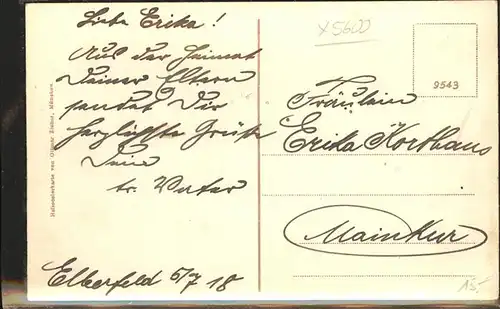 Liebe Erika!
Aus der Heimat
Deiner Eltern
sendet Dir
herzlichste Grüße
Dein
tr. Vater
Elberfeld 6/7 18
x5600
9543
Fräulein
Erika Korthaus
Mainkur
15.-